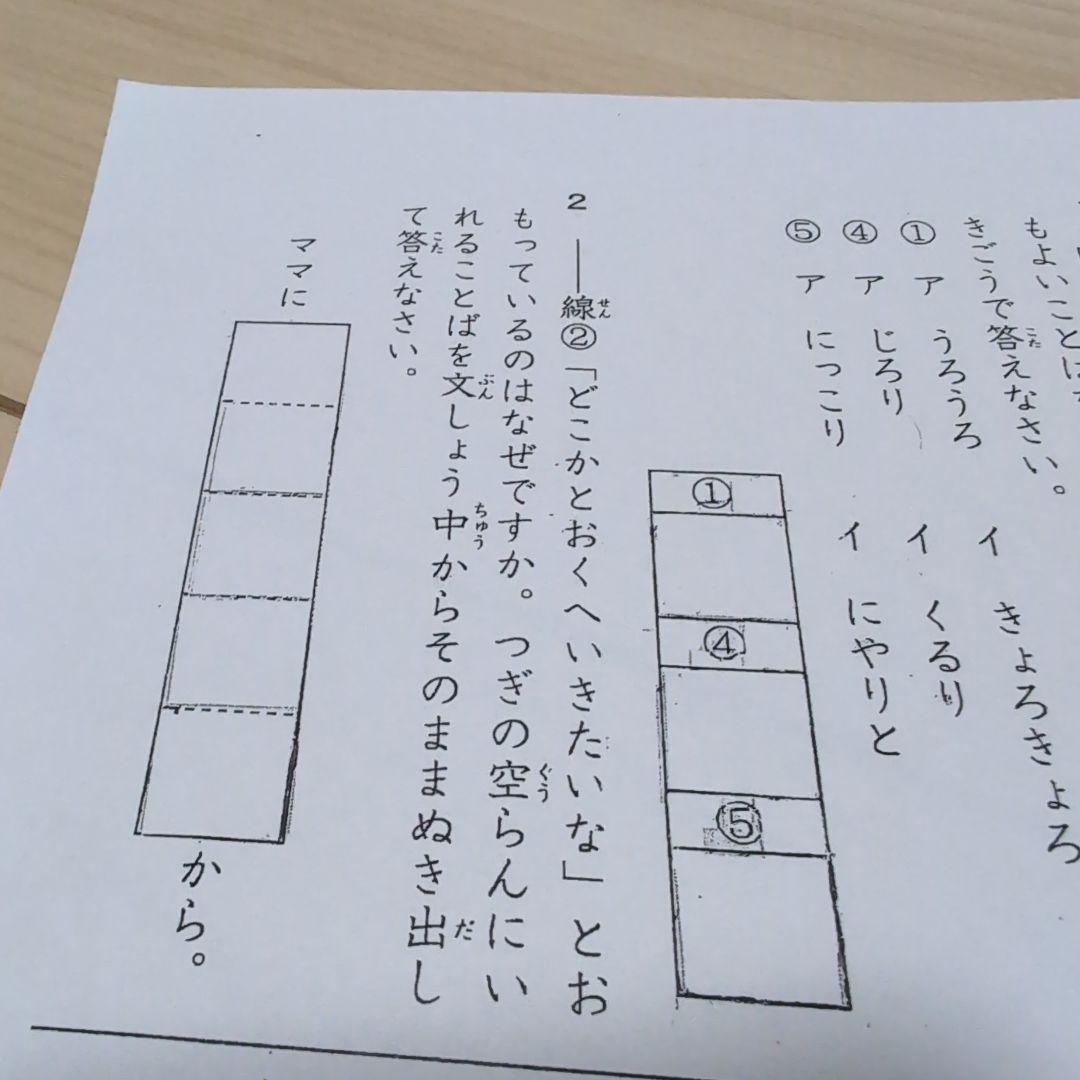 もよいことば
きごうで答えなさい。
① ア うろうろ イ きょろきょろ
④ ア じろり イ くるり
⑤ ア にっこり イ にやりと
①
④
⑤
2 ――線②「どこかとおくへいきたいな」とお
もっているのはなぜですか。つぎの空らんにい
れることばを文しょう中からそのままぬき出し
て答えなさい。
ママに
から。